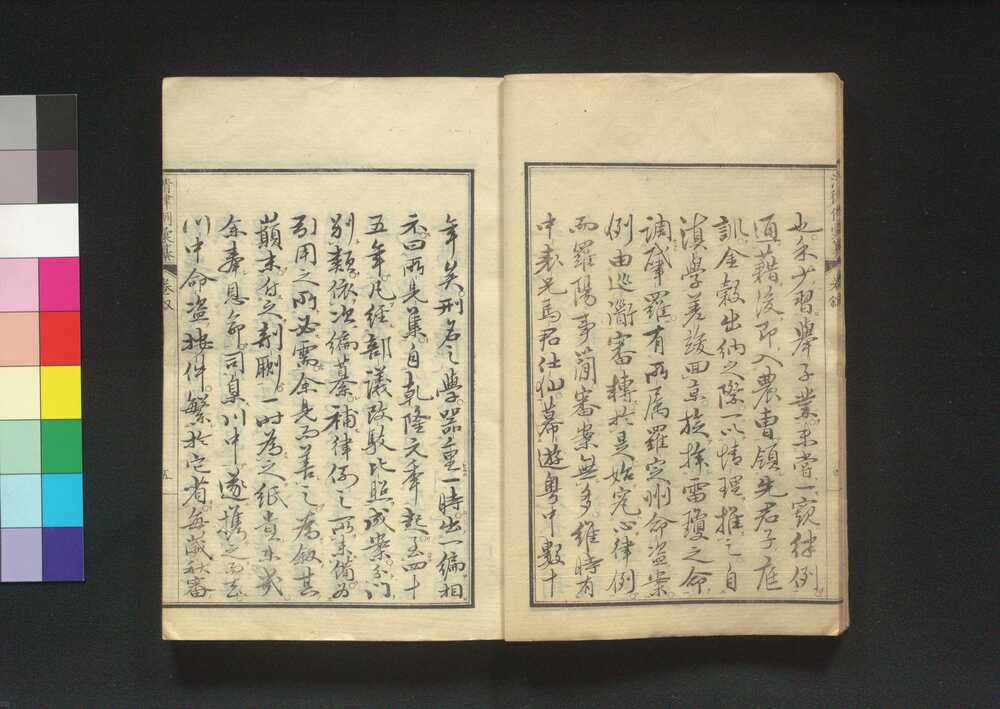 也余少習舉子業未嘗一窺律例
通藉後即入農曹領先君子庭
訓金穀出納之際一以情理推之自
滇學差竣回京旋擢雷瓊之命
調肇羅有所属羅定州命盗案
例由巡衙審轉於是始究心律例
而羅陽事簡審案無多維時有
中表兄馬君仕仙幕遊粤中數十
年矣刑名之學器重一時出一編相
示曰所見集自乾隆元年起至四十
五年凡經部議改駁比照成案分门
别類依次編纂補律例之所未備为
引用之所必需余見而善之为叙其
巔末付之剞劂一时為之紙貴未幾
余奉恩命司臬川中遂携之而去
川中命盗拢件繁於它省每歲秋審
清律例彙纂
卷叙
五